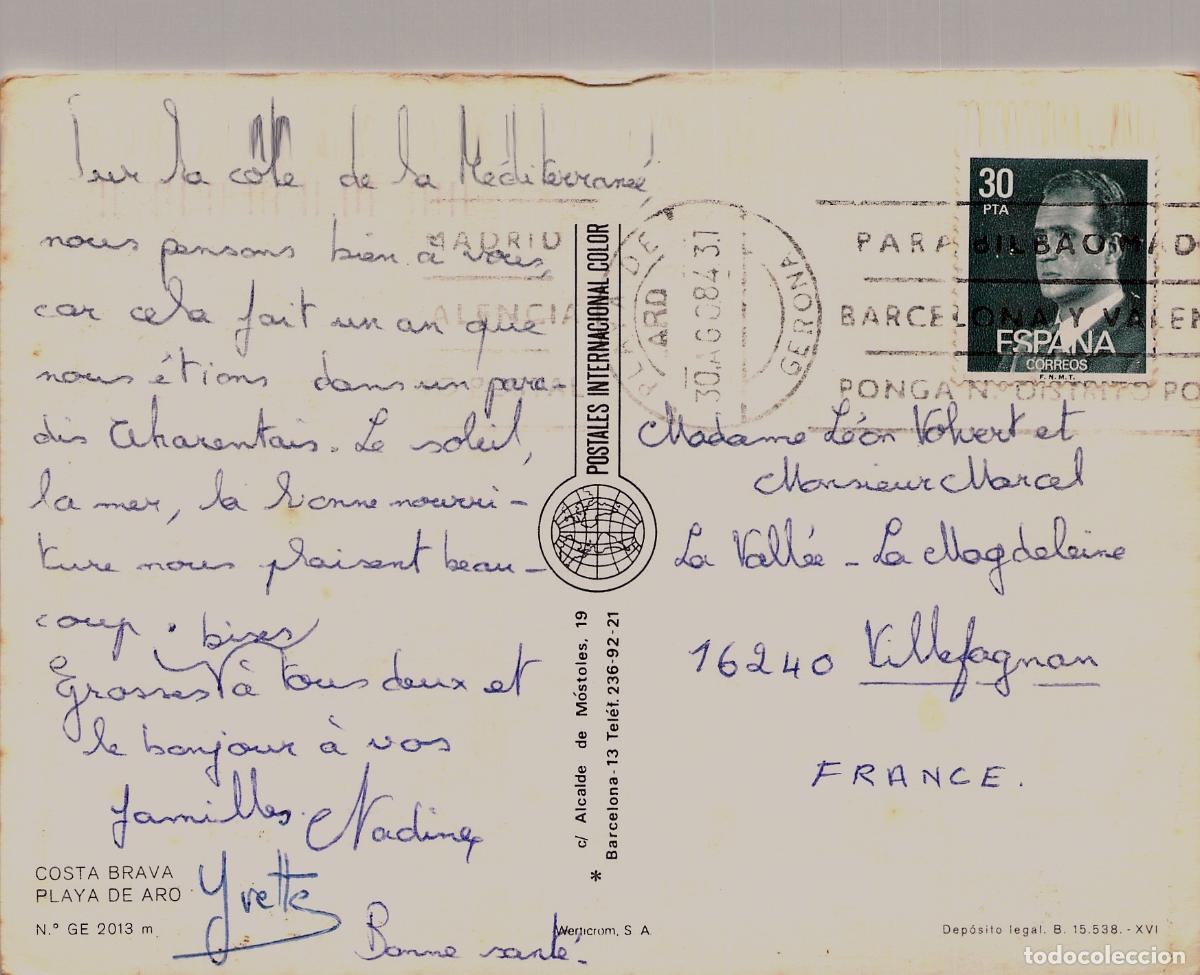 Sur la côte de la Méditerranée
nous pensons bien à vous,
car cela fait un an que
nous étions dans un para-
dis Charentais. Le soleil,
la mer, la bonne nourri-
ture nous plaisent beau-
coup.
Grosses bises à tous deux et
le bonjour à vos
familles. Nadine
Yvette
Bonne santé.
COSTA BRAVA
PLAYA DE ARO
N.º GE 2013 m
POSTALES INTERNACIONAL COLOR
c/ Alcalde de Móstoles, 19
Barcelona-13 Teléf. 236-92-21
*
Werticrom, S. A.
30
PTA
ESPAÑA
CORREOS
F.N.M.T.
MADRID
ALENCIA
PLAYA DE ARO
30 AGO 84
GERONA
PARA BILBAO MAD
BARCELONA Y VALEN
PONGA N.º DISTRITO PO
Madame Léon Volvert et
Monsieur Marcel
La Vallée - La Magdeleine
16240 Villefagnan
FRANCE.
Depósito legal. B. 15.538. - XVI
todocoleccion